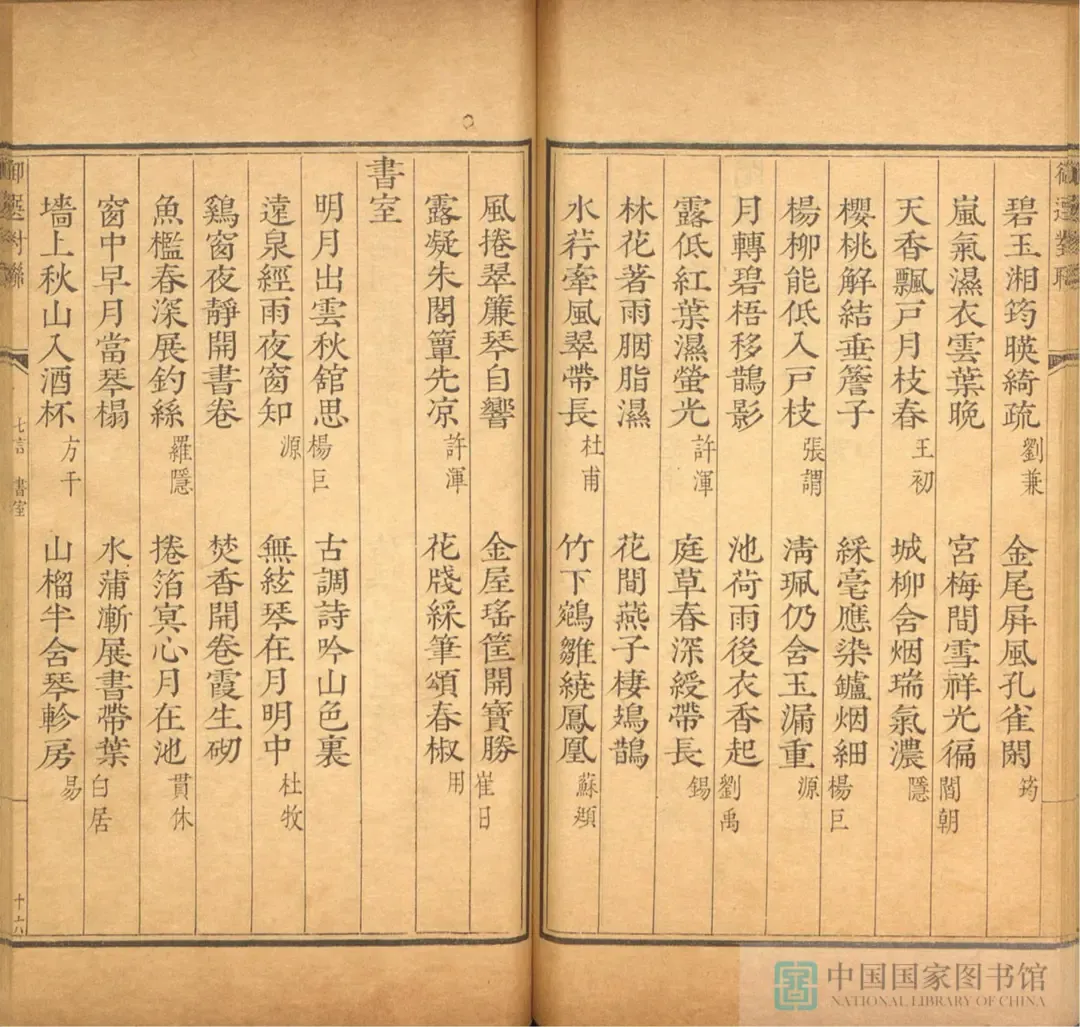 碧玉湘筠暎綺疏 劉兼 金尾屏風孔雀閑 筠
嵐氣濕衣雲葉晚 宮梅間雪祥光徧 閻朝
天香飄戸月枝春 王初 城柳含烟瑞氣濃 隱
櫻桃解結垂簷子 綵毫應染鑪烟細 楊巨
楊柳能低入戸枝 張謂 清珮仍含玉漏重 源
月轉碧梧移鵲影 池荷雨後衣香起 劉禹
露低紅葉濕螢光 許渾 庭草春深綬帶長 錫
林花著雨胭脂濕 花間燕子棲鳷鵲
水荇牽風翠帶長 杜甫 竹下鵷雛繞鳳凰 蘇頲
風捲翠簾琴自響 金屋瑤筐開寶勝 崔日
露凝朱閣簟先凉 許渾 花牋綵筆頌春椒 用
書室
明月出雲秋舘思 楊巨 古調詩吟山色裏
遠泉經雨夜窗知 源 無絃琴在月明中 杜牧
鷄窗夜靜開書卷 焚香開卷霞生砌
魚檻春深展釣絲 羅隱 捲箔冥心月在池 貫休
窗中早月當琴榻 水蒲漸展書帶葉 白居
墻上秋山入酒杯 方干 山榴半含琴軫房 易
御選對聯
七言 書室
十六
中国国家图书馆
NATIONAL LIBRARY OF CHINA